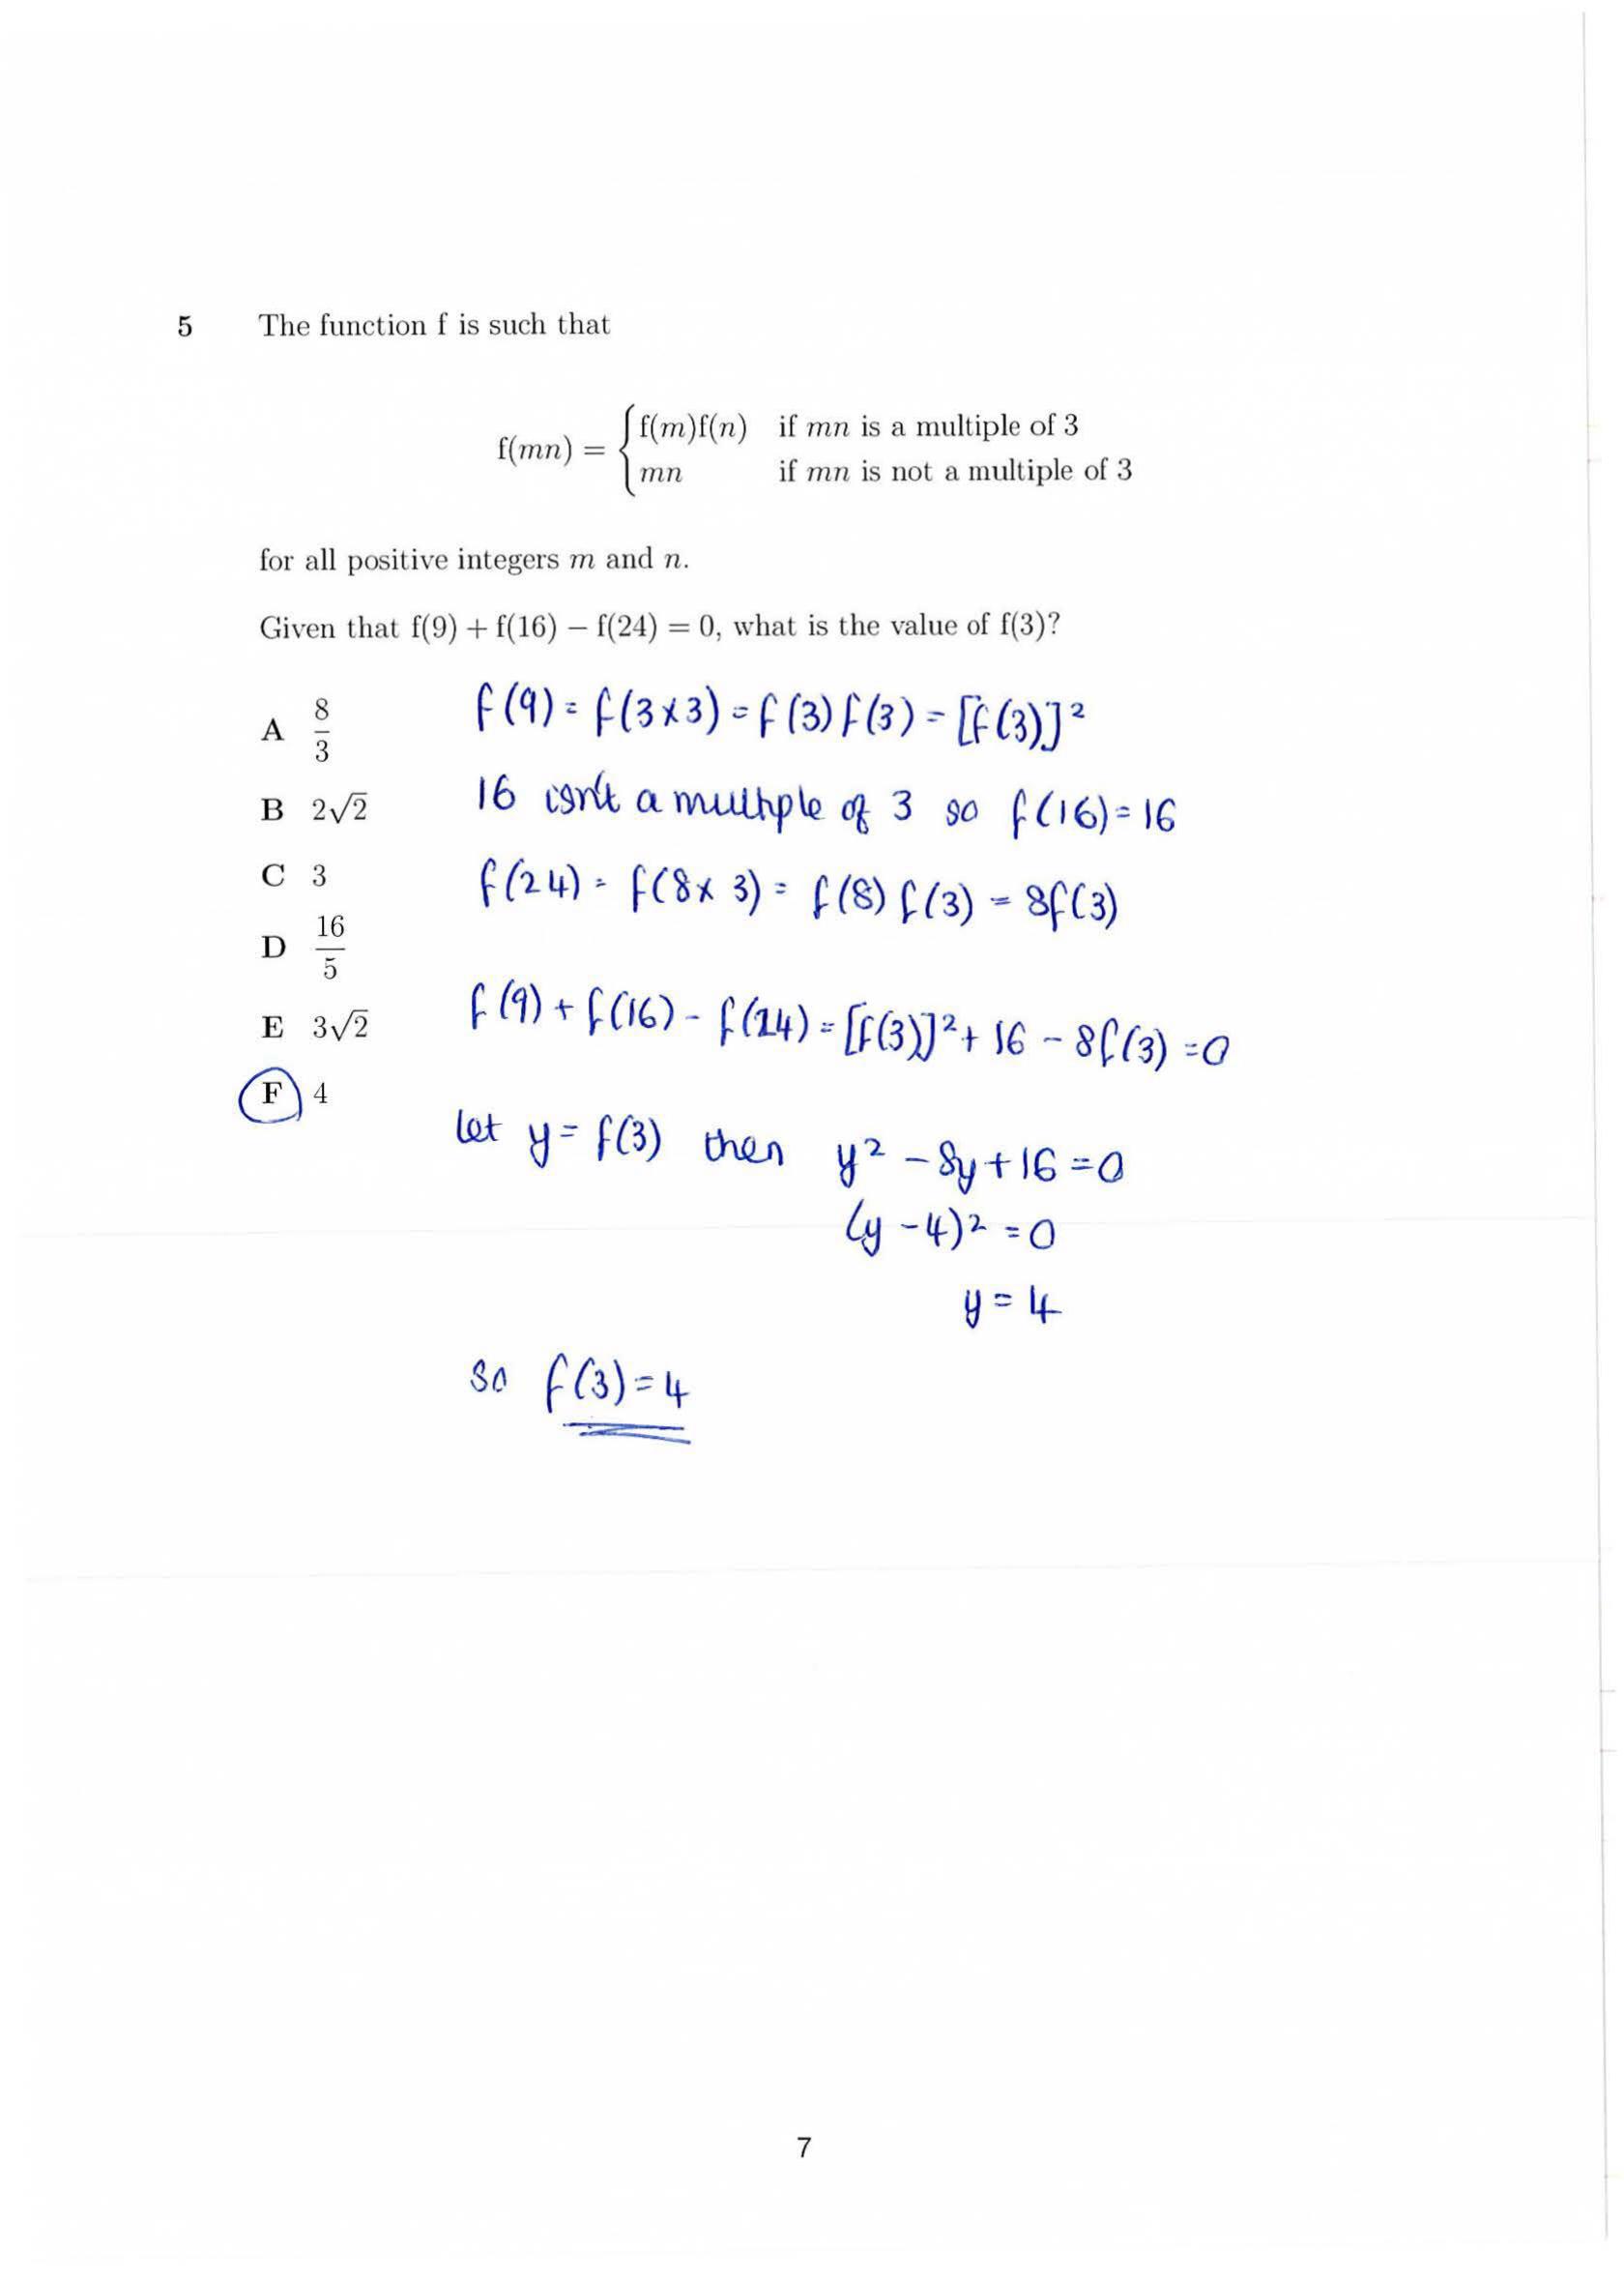 5 The function f is such that
f(mn) = { f(m)f(n) if mn is a multiple of 3
mn if mn is not a multiple of 3
for all positive integers m and n.
Given that f(9) + f(16) − f(24) = 0, what is the value of f(3)?
A 8/3
f(9) = f(3×3) = f(3)f(3) = [f(3)]²
B 2√2
16 isn't a multiple of 3 so f(16) = 16
C 3
f(24) = f(8×3) = f(8) f(3) = 8f(3)
D 16/5
E 3√2
f(9) + f(16) - f(24) = [f(3)]² + 16 - 8f(3) = 0
F 4
let y = f(3) then y² - 8y + 16 = 0
(y - 4)² = 0
y = 4
so f(3) = 4
7